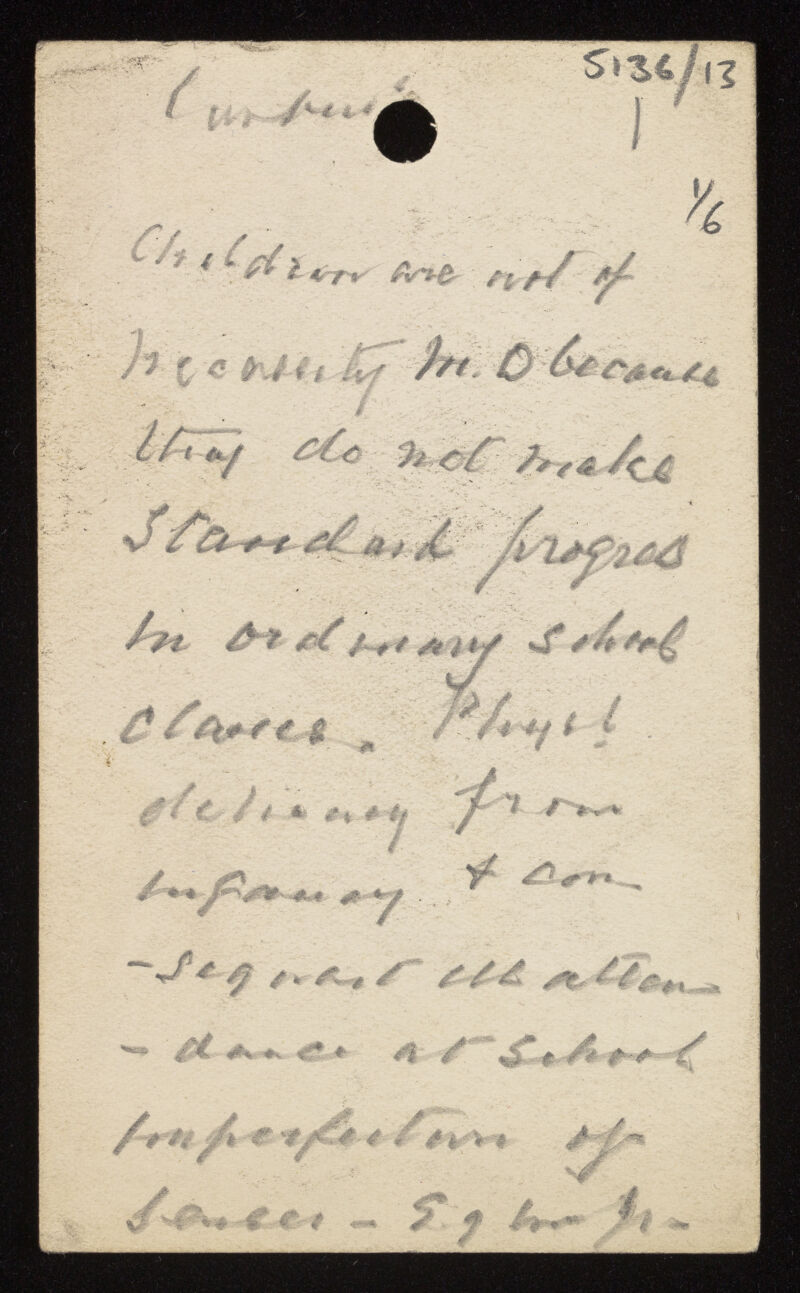 5136/13
1
1/6
Children are not of
necessity M. D because
they do not make
Standard progress
in ordinary school
classes. Phys!
delicacy from
infancy & con
-sequent ill atten
- dance at school
Imperfection of
Senses - Eg